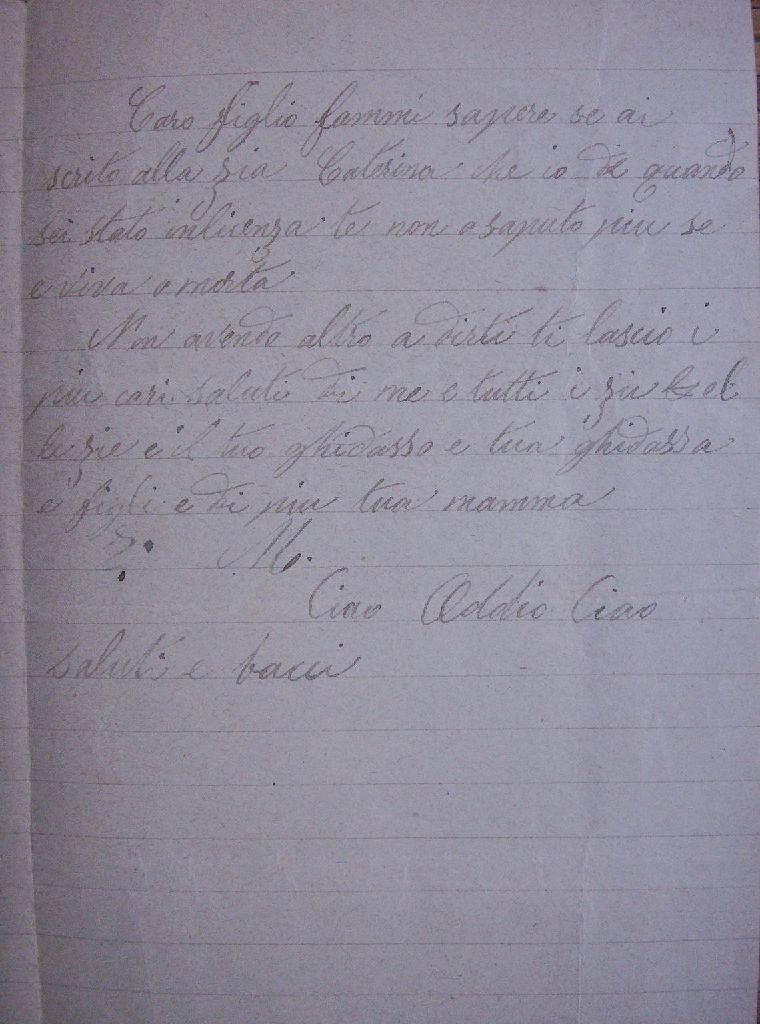 Caro figlio fammi sapere se ai
scrito alla zia Caterina che io da quando
sei stato inlicenza te non o saputo piu se
e viva o morta
Non avendo altro a dirti ti lascio i
piu cari saluti di me e tutti i zii e
le zie e il tuo ghidasso e tua ghidassa
e figli e di piu tua mamma
M.
Ciao Addio Ciao
saluti e bacci